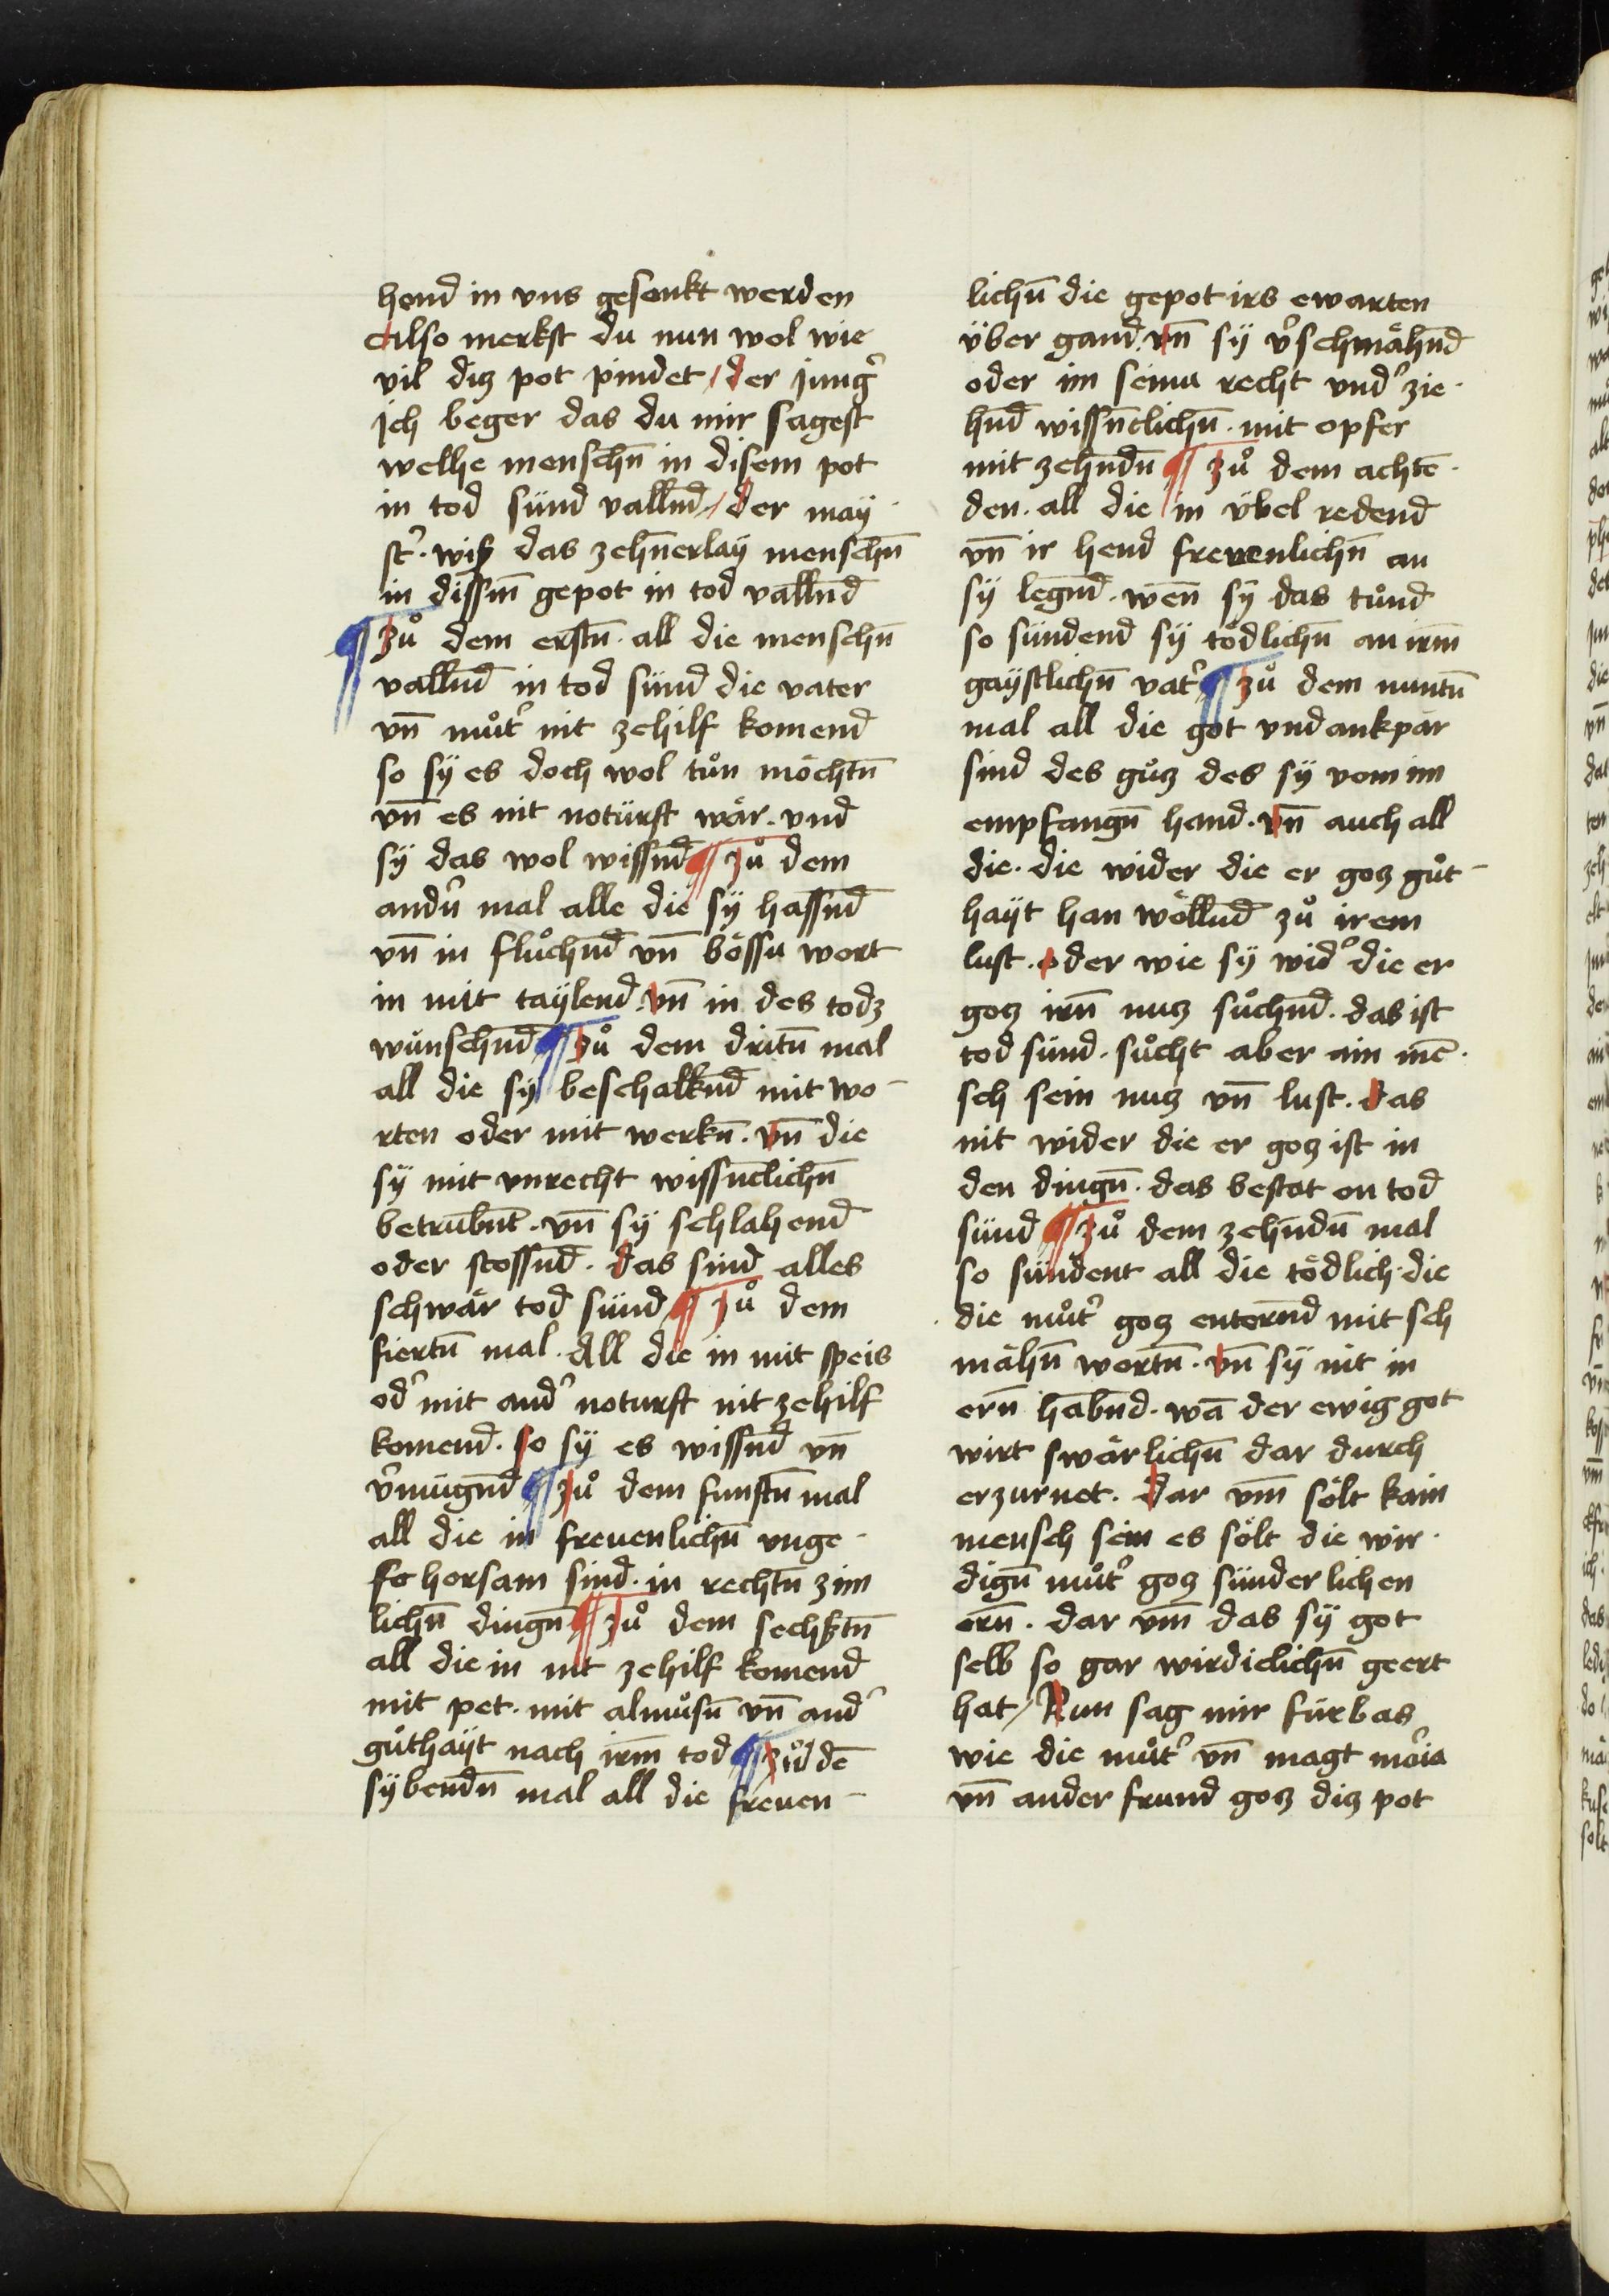 hend in vns gesenkt werden
Also merkst du nun wol wie
vil diz pot pindet / der jung̛
Jch beger das du mir sagest
welhe menschn̄ in disem pot
in tod sünd vallnd̄ / der may
st̛ · wiß das zehn̄erlay menschn̄
in dissm̄ gepot in tod valln̄d
¶ Zuͦ dem erstn̄ · all die menschn̄
vallnd̄ in tod sünd die vater
vn̄ muͦt̛ nit zehilf komend
so sy es doch wol tuͦn möchtn̄
vn̄ es nit notürft wär · vnd
sy das wol wissnd̄ ¶ Zuͦ dem
andn̛ mal alle die sy hassnd̄
vn̄ in fluͦchnd̄ vn̄ bössu wort
in mit taylend · vn̄ in des todz
wünschnd̄ ¶ Zuͦ dem dritn̄ mal
all die sy beschalknd̄ mit wo-
rten oder mit werkn̄ · vn̄ die
sy mit vnrecht wissn̄clichn̄
betrübnt̄ · vn̄ sy schlahend
oder stossnd̄ · das sind alles
schwär tod sünd ¶ Zuͦ dem
fiertn̄ mal · All die in mit speis
od̛ mit and̛ noturft nit zehilf
komend · so sy es wissnd̄ vn̄
v̛mügnd̄ ¶ Zuͦ dem funftn̄ mal
all die in freuenlichn̄ vnge-
horsam sind · in rechtn̄ zim
lichn̄ dingn̄ ¶ Zuͦ dem sechßtn̄
all die in nit zehilf komend
mit pet · mit almuͦsn̄ vn̄ and̛
guͦthayt nach irm̄ tod ¶ Zuͦ dē
sybendn̄ mal all die freuen-
lichn̄ die gepot irs ewarten
über gand · vn̄ sy v̛schmähn̄d
oder im seinu recht vnd̛zie-
hnd̄ wissn̄clichn̄ · mit opfer
mit zehn̄dn̄ ¶ Zuͦ dem achtē-
den · all die in übel redend
vn̄ ir hend freuenlichn̄ an
sy legnd̄ · wen̄ sy das tuͦnd
so sündend sy tödlichn̄ an irm̄
gaystlichn̄ vat̛ ¶ Zuͦ dem nuntn̄
mal all die got vndankpär
sind des guͦz des sy vom im
empfangn̄ hand · vn̄ auch all
die · die wider die er goz guͦt-
hayt han wöllnd̄ zuͦ irem
lust · oder wie sy wid̛ die er
goz irn̄ nuz suͦchnd̄ · das ist
tod sünd · suͦcht aber ain mē-
sch sein nuz vn̄ lust · das
nit wider die er goz ist in
den dingn̄ · das bestat on tod
sünd ¶ Zuͦ dem zehn̄dn̄ mal
so sündent all die tödlich · die
die muͦt̛ goz enternd̄ mit sch
mähn̄ wortn̄ · vn̄ sy nit in
ern̄ habn̄d · wā der ewig got
wirt swärlichn̄ dar durch
erzurnet · dar vm̄ sölt kain
mensch sein es sölt die wir-
dign̄ muͦt̛ goz sünderlichen
ern̄ · dar vm̄ das sy got
selb so gar wirdiclichn̄ geert
hat / Nun sag mir fürbas
wie die muͦt̛ vn̄ magt m̛ia
vn̄ ander frund goz diz pot